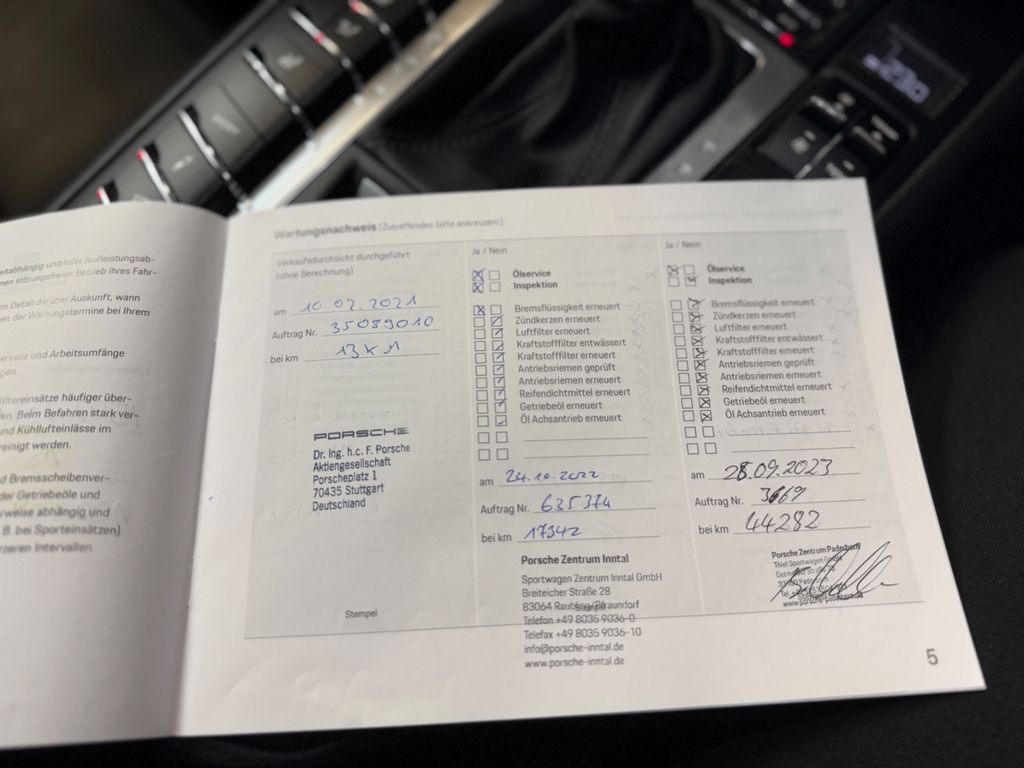 eitabhängig und/oder laufleistungsab-
nen störungsfreien Betrieb Ihres Fahr-
m Detail darüber Auskunft, wann
en der Wartungstermine bei Ihrem
ervalle und Arbeitsumfänge
gen.
ltereinsätze häufiger über-
len. Beim Befahren stark ver-
und Kühllufteinlässe im
reinigt werden.
d Bremsscheibenver-
der Getriebeöle und
rweise abhängig und
B. bei Sporteinsätzen)
rzeren Intervallen
Wartungsnachweis (Zutreffendes bitte ankreuzen!)
Verkaufsdurchsicht durchgeführt
(ohne Berechnung)
am 10.02.2021
Auftrag Nr. 35089010
bei km 13 km
PORSCHE
Dr. Ing. h.c. F. Porsche
Aktiengesellschaft
Porscheplatz 1
70435 Stuttgart
Deutschland
Stempel
Ja / Nein
Ölservice
Inspektion
Bremsflüssigkeit erneuert
Zündkerzen erneuert
Luftfilter erneuert
Kraftstofffilter entwässert
Kraftstofffilter erneuert
Antriebsriemen geprüft
Antriebsriemen erneuert
Reifendichtmittel erneuert
Getriebeöl erneuert
Öl Achsantrieb erneuert
am 24.10.2022
Auftrag Nr. 635374
bei km 17342
Porsche Zentrum Inntal
Sportwagen Zentrum Inntal GmbH
Breiteicher Straße 28
83064 Raubling/Pfraundorf
Stempel
Telefon +49 8035 9036-0
Telefax +49 8035 9036-10
info@porsche-inntal.de
www.porsche-inntal.de
Ja / Nein
Ölservice
Inspektion
Bremsflüssigkeit erneuert
Zündkerzen erneuert
Luftfilter erneuert
Kraftstofffilter entwässert
Kraftstofffilter erneuert
Antriebsriemen geprüft
Antriebsriemen erneuert
Reifendichtmittel erneuert
Getriebeöl erneuert
Öl Achsantrieb erneuert
am 28.09.2023
Auftrag Nr. 3169
bei km 44282
Porsche Zentrum Paderborn
Thiel Sportwagen GmbH
5